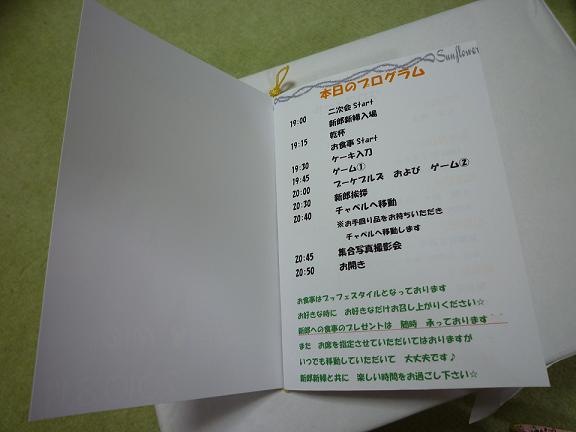 Sunflower
本日のプログラム
19:00 二次会Start
新郎新婦入場
19:15 乾杯
お食事Start
19:30 ケーキ入刀
19:45 ゲーム①
20:00 ブーケプルズ および ゲーム②
20:30 新郎挨拶
20:40 チャペルへ移動
※お手回り品をお持ちいただき
チャペルへ移動します
20:45 集合写真撮影会
20:50 お開き
お食事はブッフェスタイルとなっております
お好きな時に お好きなだけお召し上がりください☆
新郎への食事のプレゼントは 随時 承っております
また お席を指定させていただいてはおりますが
いつでも移動していただいて 大丈夫です♪
新郎新婦と共に 楽しい時間をお過ごし下さい☆